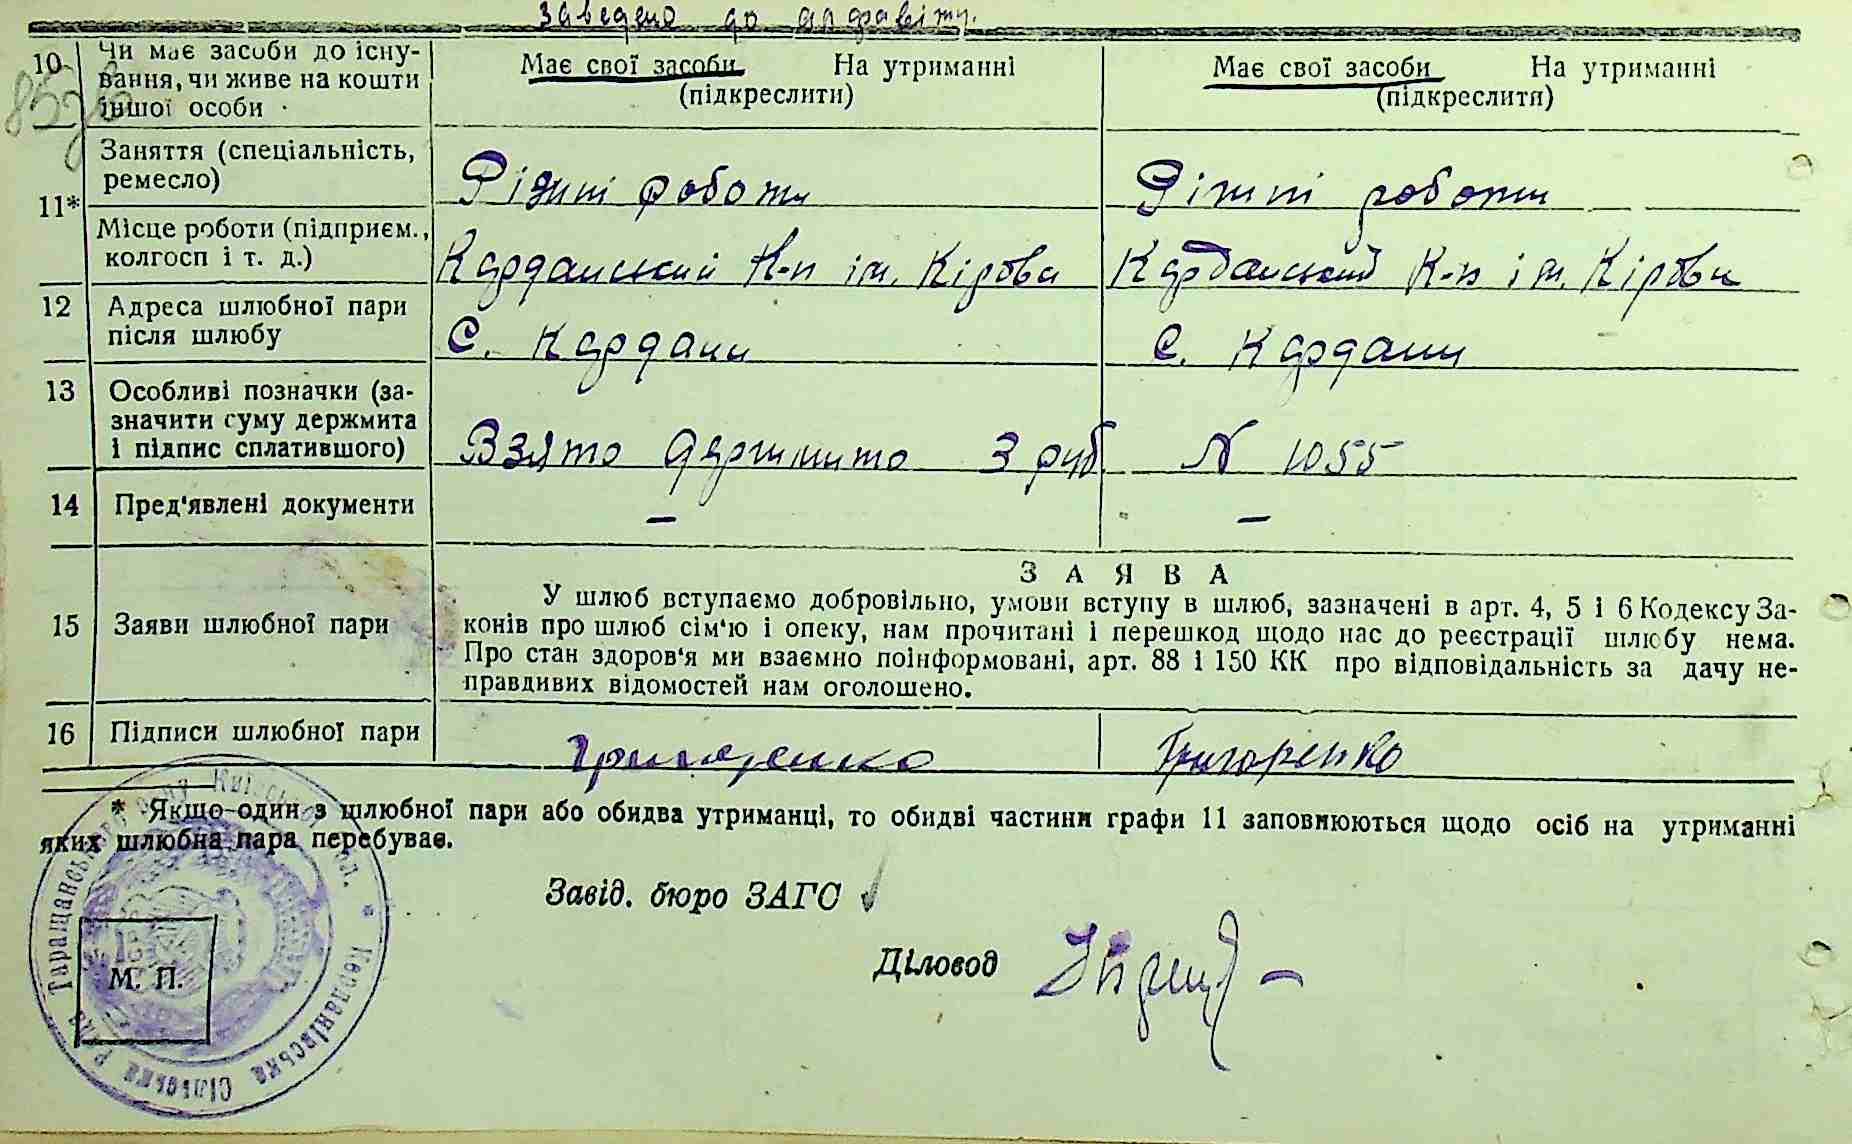 Заведено до алфавіту.
10 Чи має засоби до існу-
вання, чи живе на кошти
іншої особи
Має свої засоби На утриманні
(підкреслити)
Має свої засоби На утриманні
(підкреслити)
85
11*
Заняття (спеціальність,
ремесло)
Різні роботи
Різні роботи
Місце роботи (підприєм.,
колгосп і т. д.)
Кардашский К-п ім. Кірова
Кардашский К-п ім. Кірова
12 Адреса шлюбної пари
після шлюбу
С. Кардаши
С. Кардаши
13 Особливі позначки (за-
значити суму держмита
і підпис сплатившого)
Взято держмито 3 руб
N 1055
14 Пред'явлені документи
–
–
15 Заяви шлюбної пари
ЗАЯВА
У шлюб вступаємо добровільно, умови вступу в шлюб, зазначені в арт. 4, 5 і 6 Кодексу За-
конів про шлюб сім'ю і опеку, нам прочитані і перешкод щодо нас до реєстрації шлюбу нема.
Про стан здоров'я ми взаємно поінформовані, арт. 88 і 150 КК про відповідальність за дачу не-
правдивих відомостей нам оголошено.
16 Підписи шлюбної пари
Григоренко
Григоренко
* Якщо один з шлюбної пари або обидва утриманці, то обидві частини графи 11 заповнюються щодо осіб на утриманні
яких шлюбна пара перебуває.
Завід. бюро ЗАГС
Діловод
М. П.
Керданівська Сільська Рада Таращанського р-ну Київської обл.